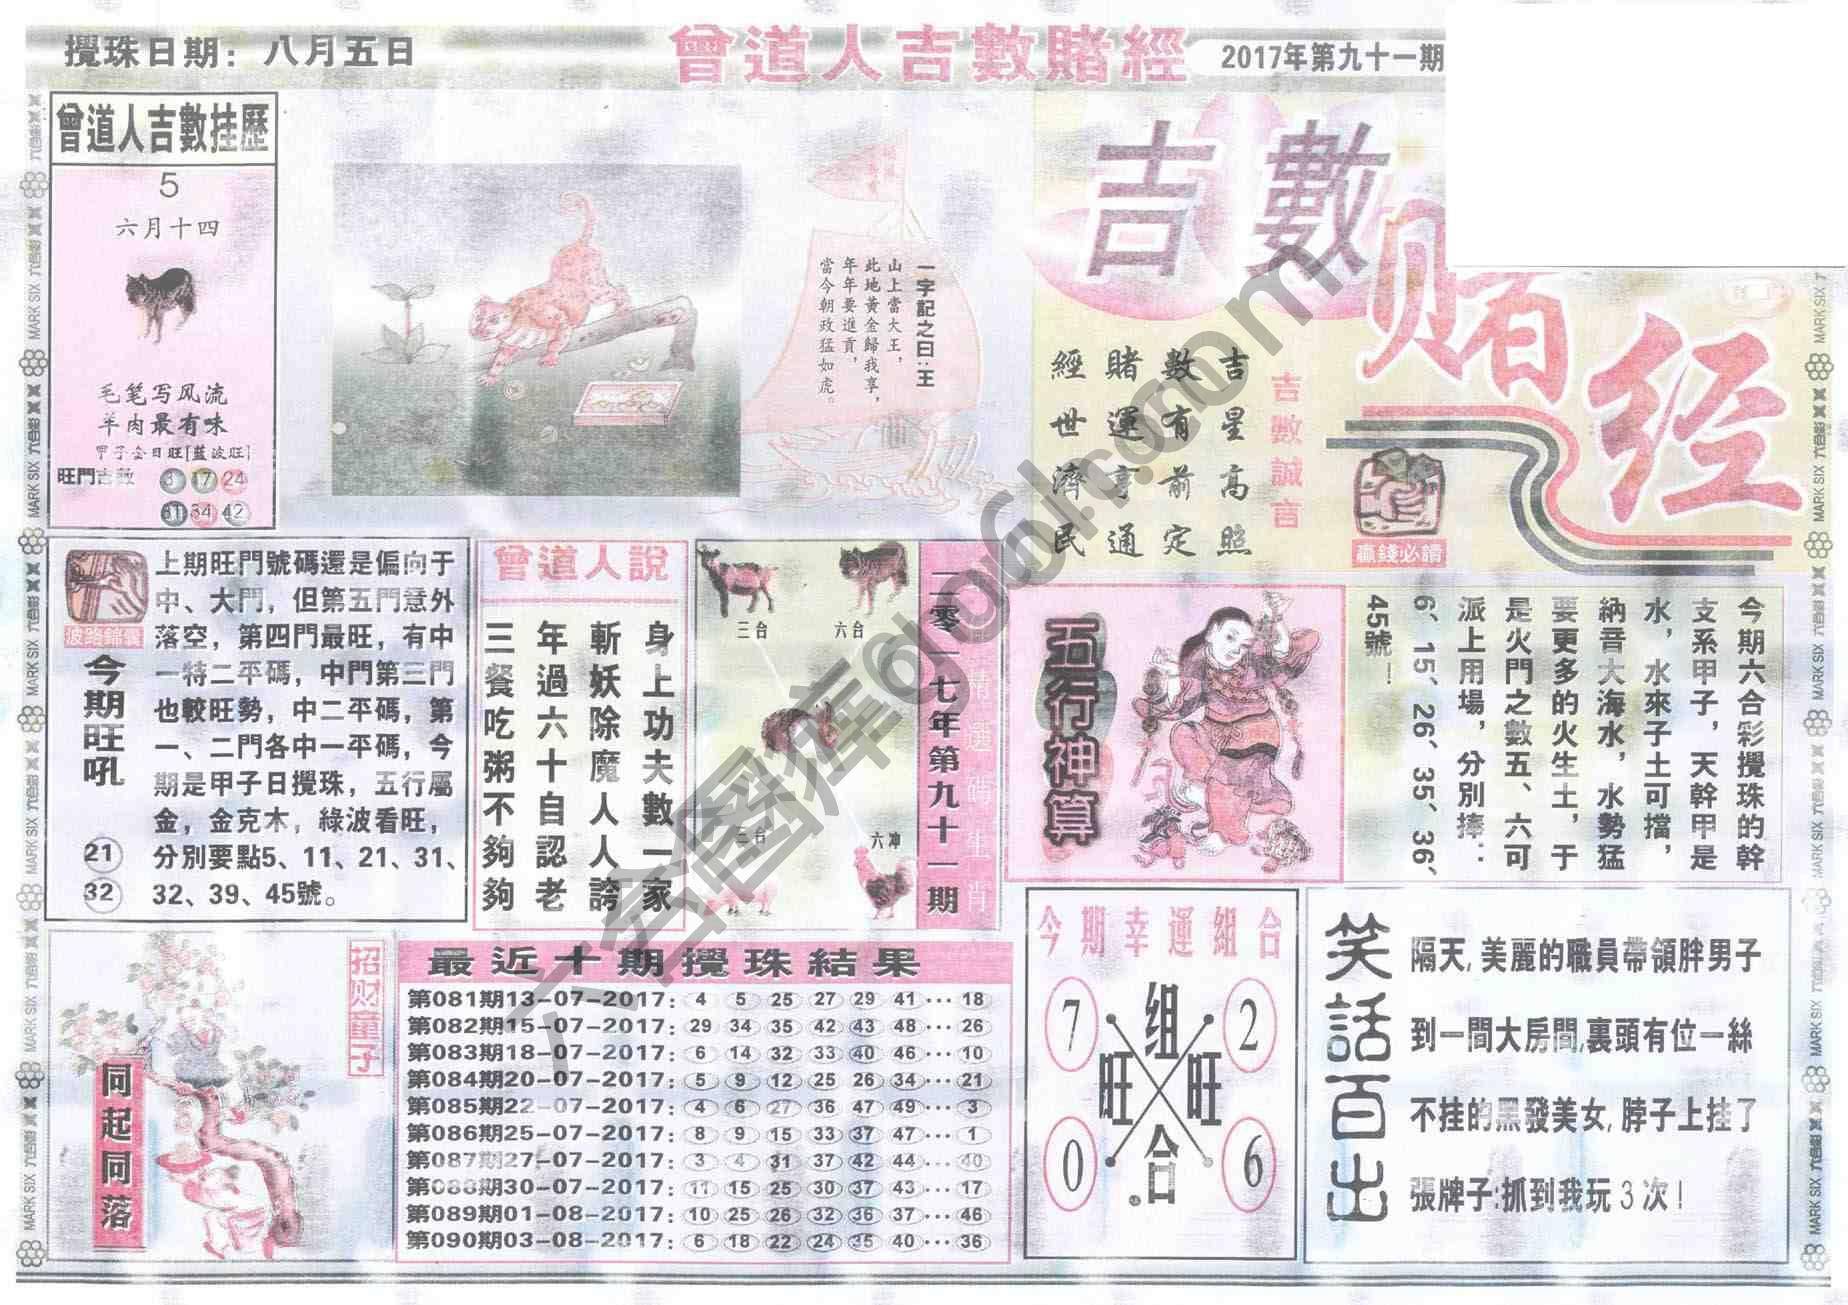 攪珠日期：八月五日
曾道人吉數賭經
2017年第九十一期
曾道人吉數挂歷
5
六月十四
毛笔写风流
羊肉最有味
甲子金日旺[蓝波旺]
旺門吉数
3 17 24
31 34 42
一字記之曰：王
山上當大王，
此地黃金歸我享，
年年要進貢，
當今朝政猛如虎。
吉數
賭經
吉數誠言
吉星高照
數有前定
賭運亨通
經世濟民
贏錢必讀
波路錦囊
今期旺吼
21
32
上期旺門號碼還是偏向于
中、大門，但第五門意外
落空，第四門最旺，有中
一特二平碼，中門第三門
也較旺勢，中二平碼，第
一、二門各中一平碼，今
期是甲子日攪珠，五行屬
金，金克木，綠波看旺，
分別要點5、11、21、31、
32、39、45號。
曾道人說
身上功夫數一家
斬妖除魔人人誇
年過六十自認老
三餐吃粥不夠夠
三台
六合
三台
六冲
二零一七年第九十一期
精選碼生肖
五行神算
今期六合彩攪珠的幹
支系甲子，天幹甲是
水，水來子土可擋，
納音大海水，水勢猛
要更多的火生土，于
是火門之數五、六可
派上用場，分別捧：
6、15、26、35、36、
45號！
招财童子
同起同落
最近十期攪珠結果
第081期13-07-2017: 4 5 25 27 29 41 ··· 18
第082期15-07-2017: 29 34 35 42 43 48 ··· 26
第083期18-07-2017: 6 14 32 33 40 46 ··· 10
第084期20-07-2017: 5 9 12 25 26 34 ··· 21
第085期22-07-2017: 4 6 27 36 47 49 ··· 3
第086期25-07-2017: 8 9 15 33 37 47 ··· 1
第087期27-07-2017: 3 4 31 37 42 44 ··· 40
第088期30-07-2017: 11 15 25 30 37 43 ··· 17
第089期01-08-2017: 10 25 26 32 36 37 ··· 46
第090期03-08-2017: 6 18 22 24 35 40 ··· 36
今期幸運組合
7 组 2
旺 旺
0 合 6
笑話百出
隔天,美麗的職員帶領胖男子
到一間大房間,裏頭有位一絲
不挂的黑發美女,脖子上挂了
張牌子:抓到我玩3次!
六合图库